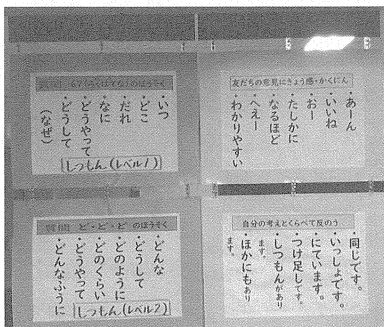 質問 6?(らくはてな)のほうそく
・いつ
・どこ
・だれ
・なに
・どうやって
・どうして
(なぜ)
しつもん(レベル1)
友だちの意見にきょう感・かくにん
・あーん
・いいね
・おー
・たしかに
・なるほど
・へえー
・わかりやすい
質問 ど・ど・ど のほうそく
・どんな
・どうして
・どのように
・どのくらい
・どうやって
・どんなふうに
しつもん(レベル2)
自分の考えとくらべて反のう
・同じです。
・いっしょです。
・にています。
・つけ足しです。
・しつもんがあり
ます。
・ほかにもあり
ます。